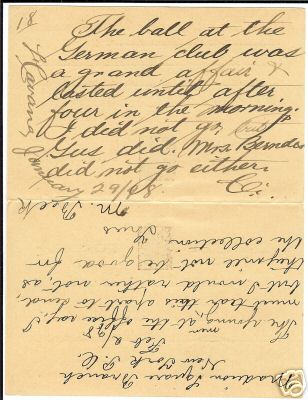 18
Havana, January 29/98.
The ball at the
German club was
a grand affair &
lasted until after
four in the morning.
I did not go, but
Gus did. Mrs.
did not go either.
C.
Madison Square Branch
New York P.O.
Feb 2/98
The young men at the office say I
must tear this apart to send,
but I would rather not, as
they will not be good for
the collection.
Yours
M. Beck